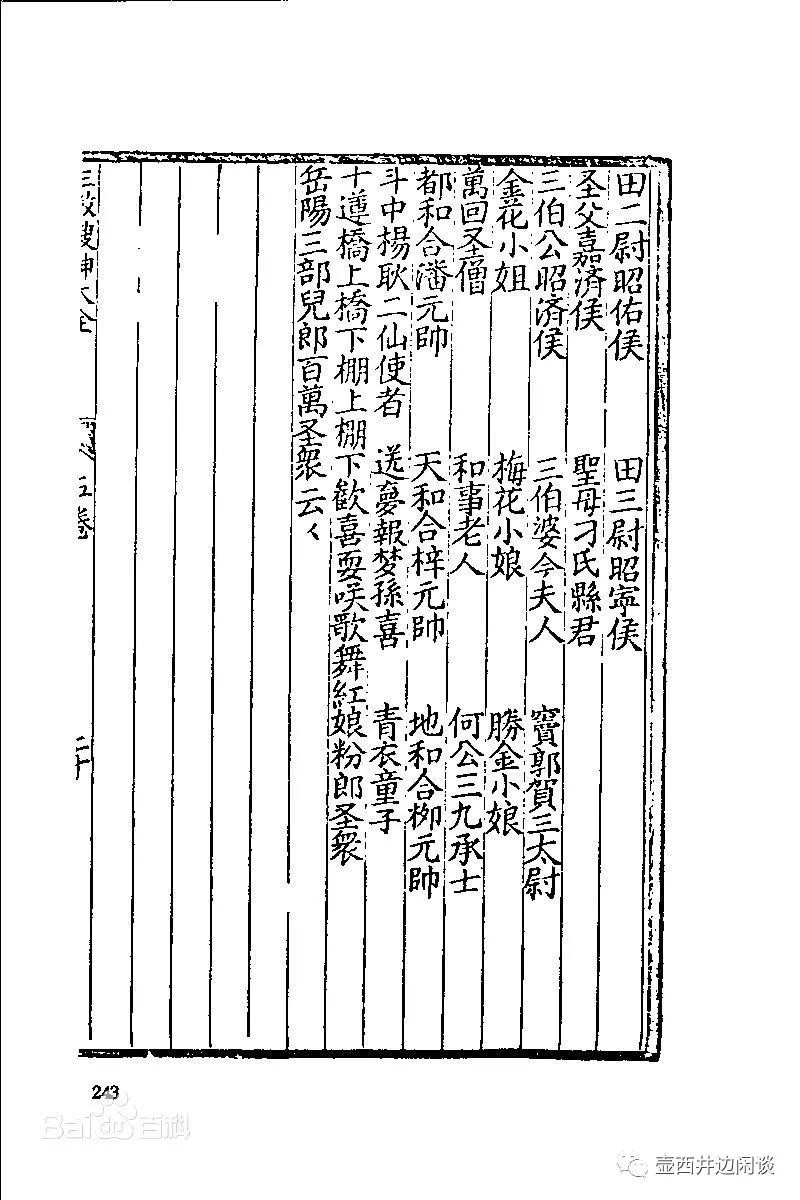 田二尉昭佑侯 田三尉昭寧侯
圣父嘉済侯 聖母刁氏縣君
三伯公昭済侯 三伯婆今夫人 竇郭賀三太尉
金花小姐 梅花小娘 勝金小娘
萬回圣僧 和事老人 何公三九承士
都和合潘元帥 天和合梓元帥 地和合柳元帥
斗中楊耿二仙使者 送夢報梦孫喜 青衣童子
十遵橋上橋下棚上棚下歡喜耍咲歌舞紅娘粉郎圣衆
岳陽三部兒郎百萬圣衆云々
三教搜神大全 五卷 二十
243
Bai百科
壶西井边闲谈